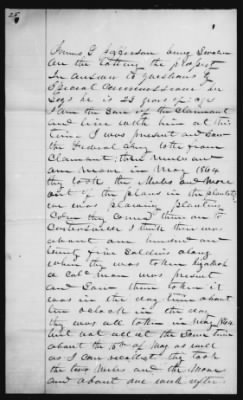 25
James E Jackson being Sworn
on the taking the
In answer to questions of
Special Commissioner
Says he is 23 years of age
I am the Son of the Claimant
and live with him at this
time I was present and Saw
the Federal Army take from
Claimant, three Mules and
one Mare in May 1864
they took the Mules and Mare
out of the plows in the
we was planting
Corn they carried them on to
I think there was
about one hundred and
twenty five Soldiers along
when they was taken
a cold man was present
and Saw them taken it
was in the day time about
ten oclock in the day
they was all taken in May 1864
but not all at the Same time
about the of May as well
as I can recollect they took
the two Mules and the Mare
and about one week after